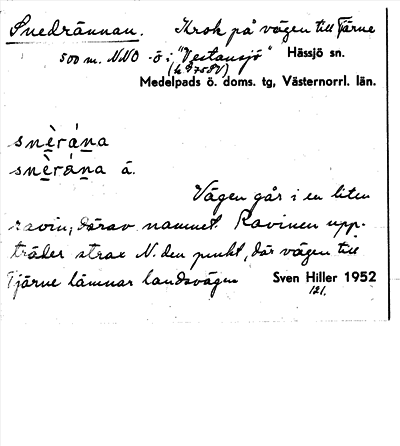 Snedrännan. Krok på vägen till Tjärne
500 m. NNO -ö i "Vestansjö" Hässjö sn.
Medelpads ö. doms. tg, Västernorrl. län.
snèrána
snèrána å.
Vägen går i en liten
ravin, därav namnet. Ravinen upp-
träder strax N. den punkt, där vägen till
Tjärne lämnar landsvägen Sven Hiller 1952
121.